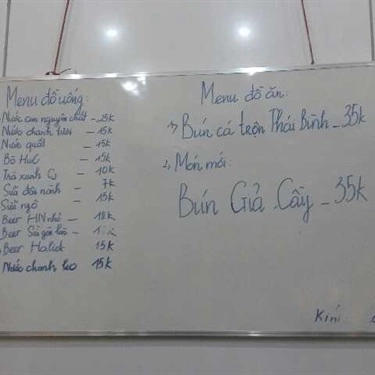 Menu đồ uống:
Nước cam nguyên chất - 25k
Nước chanh tươi - 15k
Nước quất - 15k
Bò Húc - 15k
Trà xanh C2 - 10k
Sữa đậu nành - 7k
Sữa ngô - 15k
Beer HN nhỏ - 18k
Beer Sài gòn lùn -
Beer Halida 15k
Nước chanh leo 15k
Menu đồ ăn:
Bún cá trộn Thái Bình - 35k
Món mới:
Bún Giả Cầy - 35k
Kính